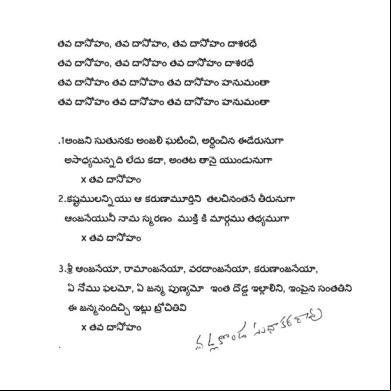 తవ దాసోహం, తవ దాసోహం, తవ దాసోహం దాశరధే
తవ దాసోహం, తవ దాసోహం తవ దాసోహం దాశరధే
తవ దాసోహం తవ దాసోహం తవ దాసోహం హనుమంతా
తవ దాసోహం తవ దాసోహం తవ దాసోహం హనుమంతా
.1అంజని సుతునకు అంజలి ఘటించి, అర్థించిన ఈడేరునుగా
అసాధ్యమన్నది లేదు కదా, అంతట తానై యుండునుగా
x తవ దాసోహం
2.కష్టములన్నియు ఆ కరుణామూర్తిని తలచినంతనే తీరునుగా
ఆంజనేయునీ నామ స్మరణం ముక్తి కి మార్గము తథ్యముగా
x తవ దాసోహం
3.శ్రీ ఆంజనేయా, రామాంజనేయా, వరదాంజనేయా, కరుణాంజనేయా,
ఏ నోము ఫలమో, ఏ జన్మ పుణ్యమో ఇంత దొడ్డ ఇల్లాలిని, ఇంపైన సంతతిని
ఈ జన్మనందిచ్చి ఇట్లు బ్రోచితివి
x తవ దాసోహం